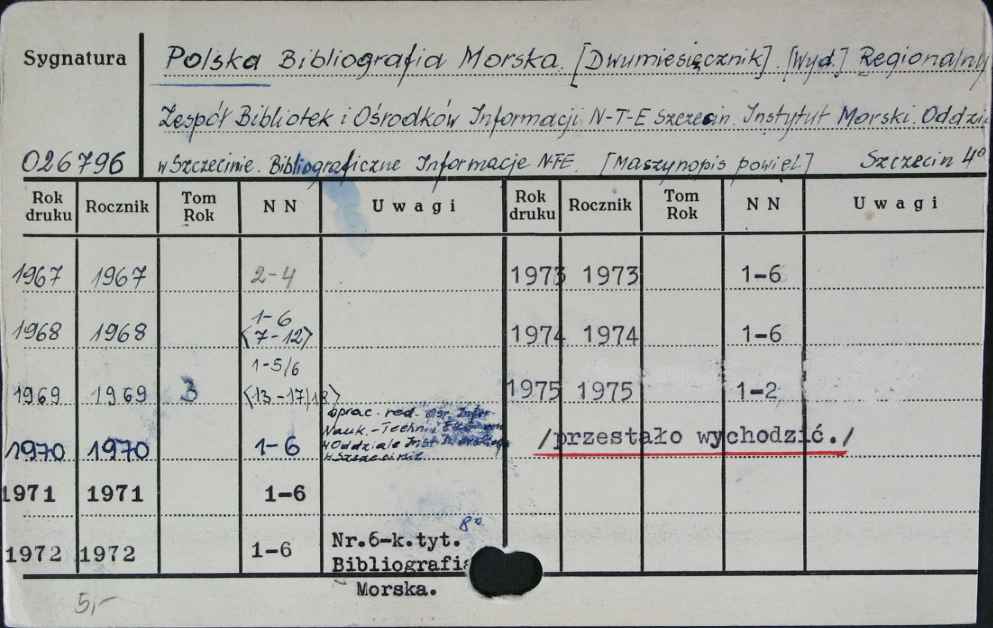 Sygnatura
Polska Bibliografia Morska. [Dwumiesięcznik]. [Wyd.] Regionalny
Zespół Bibliotek i Ośrodków Informacji N-T-E Szczecin. Instytut Morski. Oddzia
026796
w Szczecinie. Bibliograficzne Informacje NTE. [Maszynopis powiel.] Szczecin 4°
Rok druku Rocznik Tom Rok NN Uwagi Rok druku Rocznik Tom Rok NN Uwagi
1967 1967 2-4 1973 1973 1-6
1968 1968 1-6 <7-12> 1974 1974 1-6
1969 1969 3 1-5/6 <13-17/18> 1975 1975 1-2
1970 1970 1-6 oprac. red. Ośr. Infor. Nauk.-Techn. i w Oddziale Inst. w Szczecinie /przestało wychodzić./
1971 1971 1-6
1972 1972 1-6 Nr.6-k.tyt. 8° Bibliografia Morska.
5,-